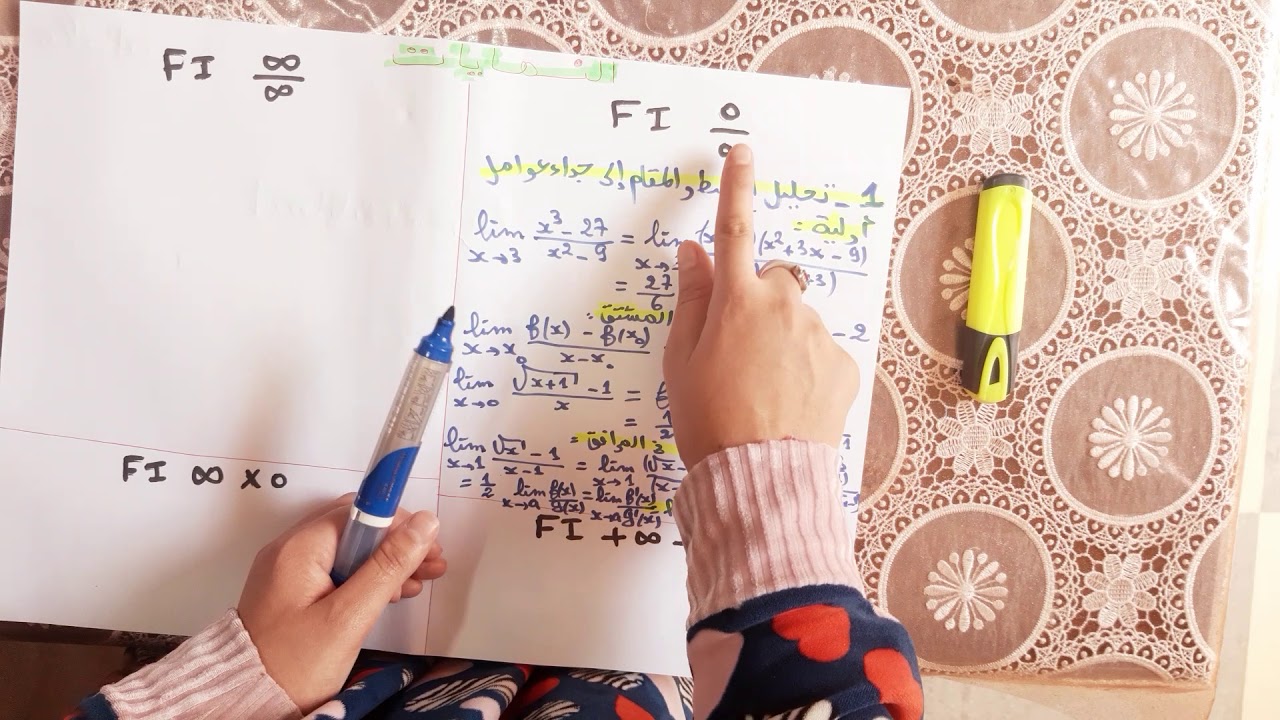 النهايات
FI 0/0
1 - تحليل والمقام إلى جداء عوامل
أولية :
lim x→3 x³ - 27 / x² - 9 = lim (x² + 3x - 9)
= 27/6
2 - المشتق :
lim x→x₀ f(x) - f(x₀) / x - x₀
lim x→0 √x+1 - 1 / x =
= 1/2
المرافق :
lim x→1 √x - 1 / x - 1 = lim x→1
= 1/2 lim x→a f(x)/g(x) = lim x→a f'(x)/g'(x)
FI + ∞
FI ∞/∞
FI ∞ × 0